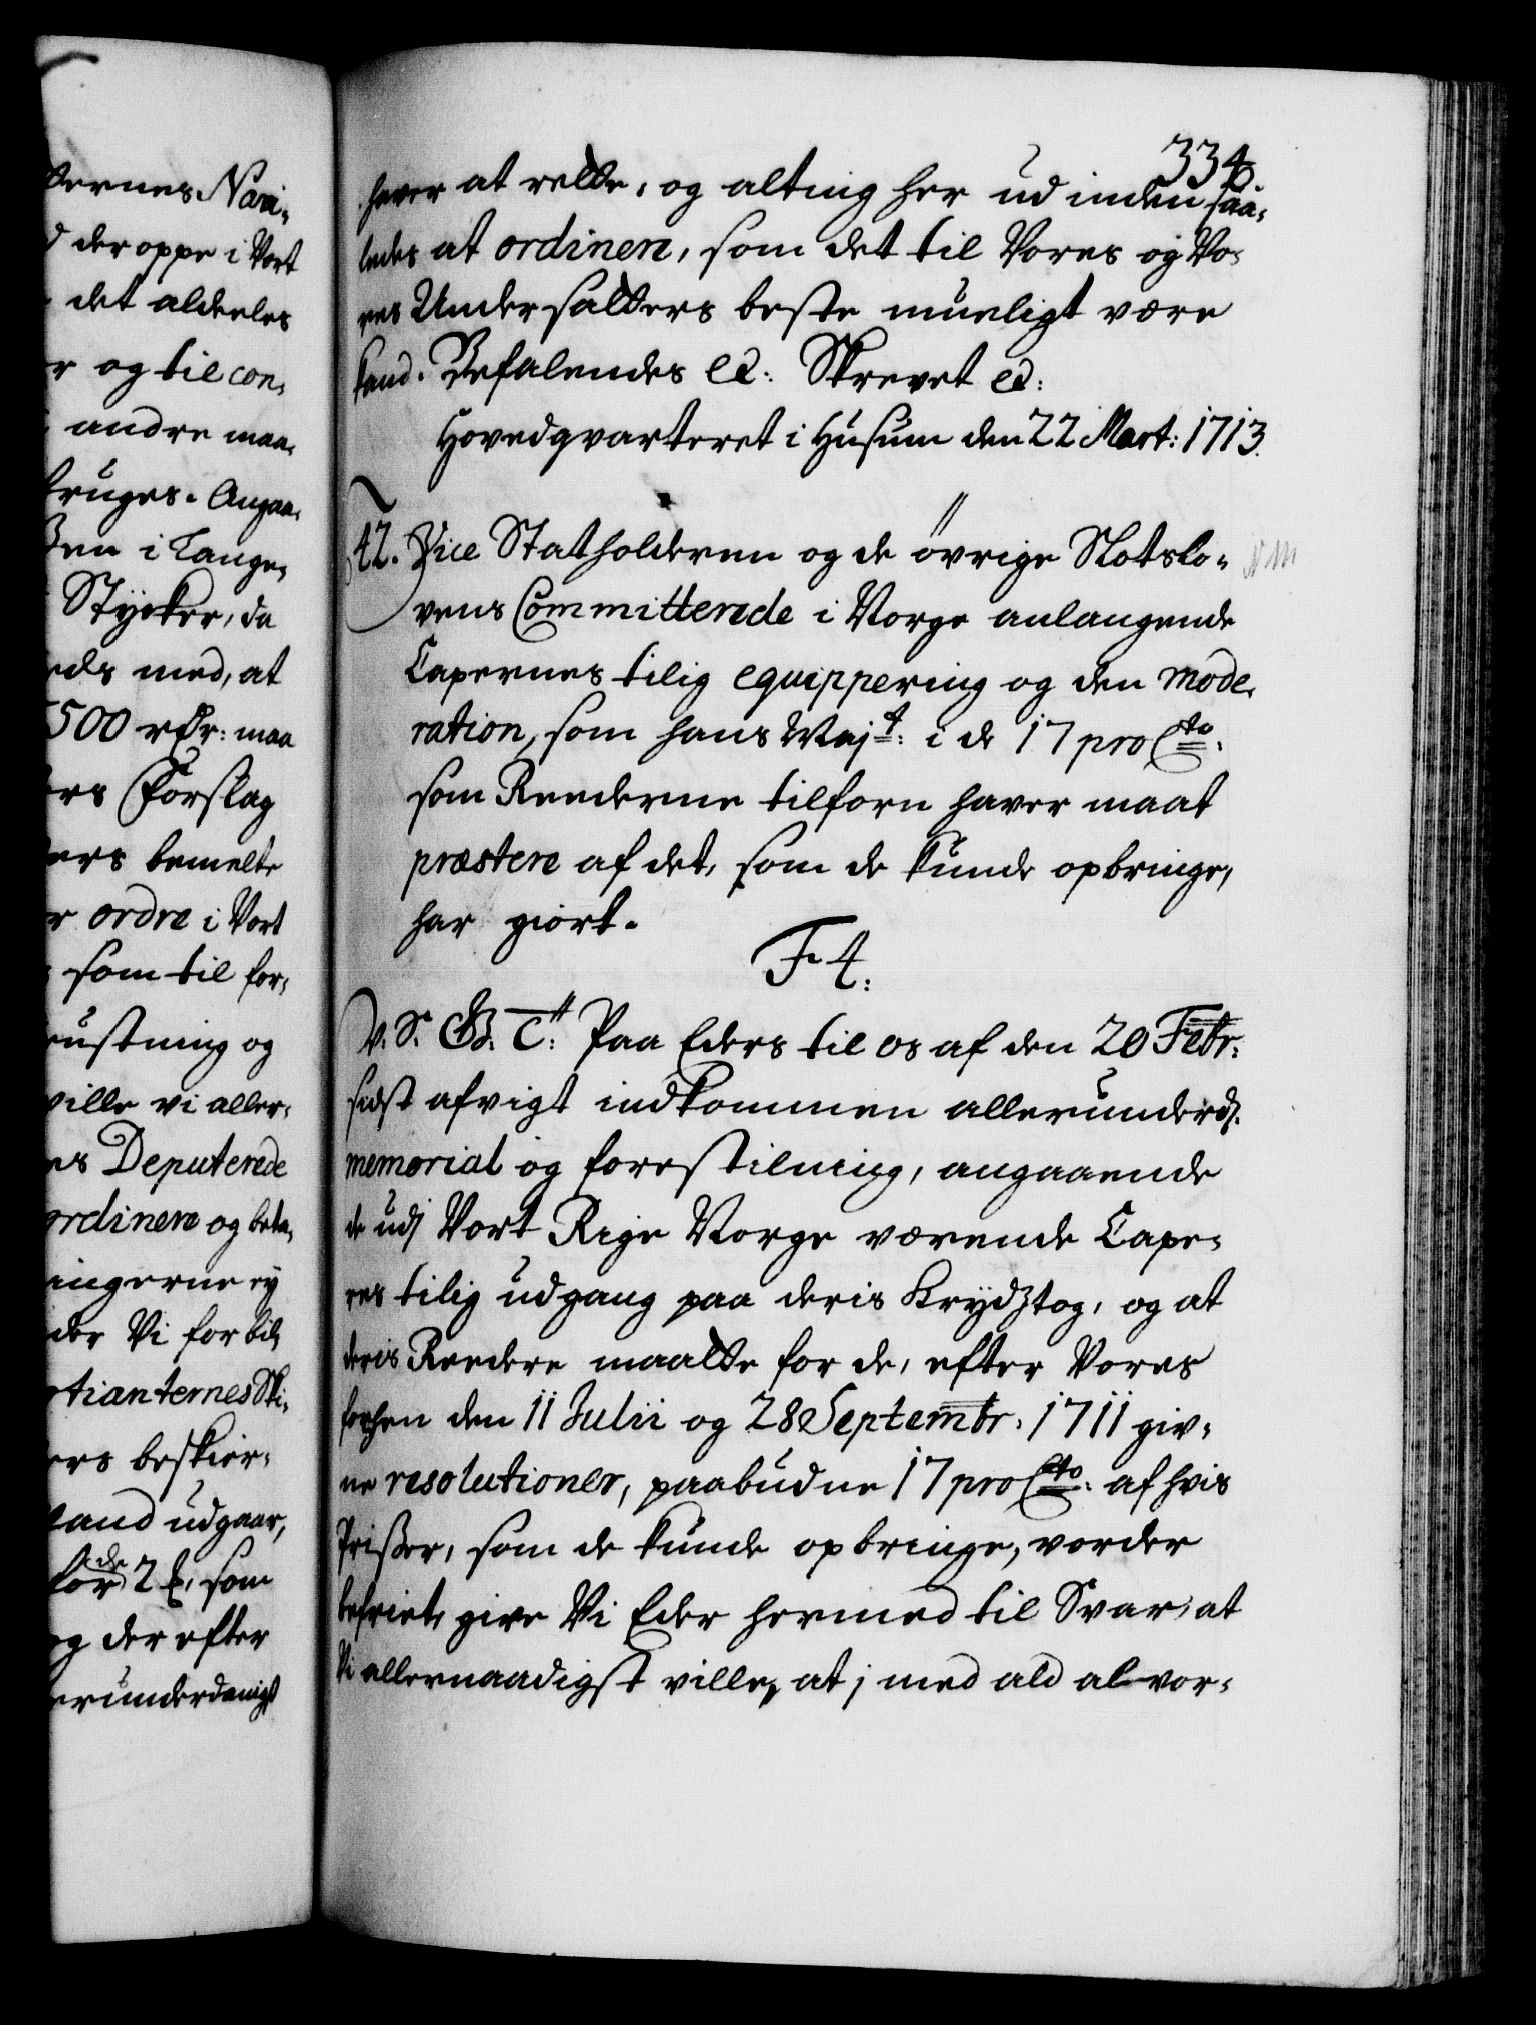 ternes Navi-
d der oppe i Vort
det aldeeles
r og til con-
andre maa-
bruges. Angaa-
Lange-
Stycker, da
eds med, at
500 rdr: maa
ers Forslag
ers bemelte
r ordre i Vort
som til for-
rustning og
ville vi aller-
es Deputerede
ordinere og beta-
ingerne ey
der Vi for bil-
tianternes Ski-
ers beskier-
land udgaar,
for de 2 som
og der efter
erunderdanigst
334.
haver at rette, og alting her ud inden saa-
ledes at ordinere, som det til Vores og Vo-
res Undersatters beste mueligt være
kand. Befalendes ec: Skrevet ec:
Hovedqvarteret i Husum den 22 Mart: 1713.
42. Vice Statholderen og de övrige Slotslo-
vens Committerede i Norge anlangende
Capernes tilig equippering og den mode-
ration, som hans Majt: i de 17 pro Cto:
som Reederne tilforn haver maat
præstere af det, som de kunde opbringe,
har giort.
F 4:
V. S. G. T: Paa Eders til os af den 20 Febr:
sidst afvigt indkommen allerunderd:
memorial og forestilning, angaaende
de udj Vort Rige Norge værende Cape-
res tilig udgang paa deris Krydztog, og at
deris Reedere maatte for de, efter Vores
forhen den 11 Julii og 28 Septembr: 1711 giv-
ne resolutioner, paabudne 17 pro Cto: af hvis
Prisser, som de kunde opbringe, vorder
befriet, give Vi Eder hermed til Svar, at
Vi allernaadigst ville, at j med ald alvor-